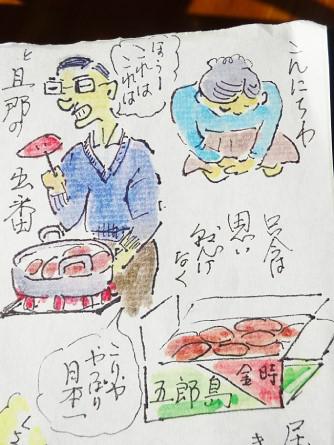 こんにちわ
只今は
思い
懸けなく
ほぅー
これは
これは
と旦那の出番
五郎島
金時
こりゃ
やっぱり
日本一